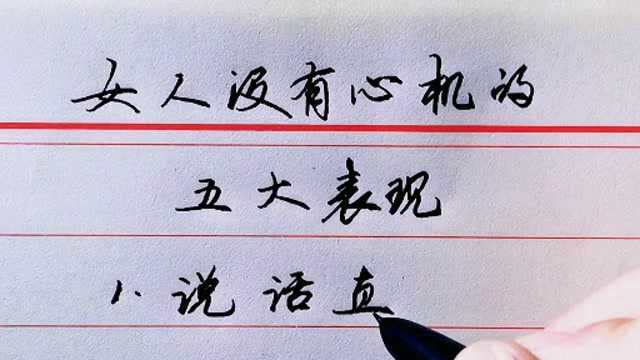 女人没有心机的
五大表现
1.说话直